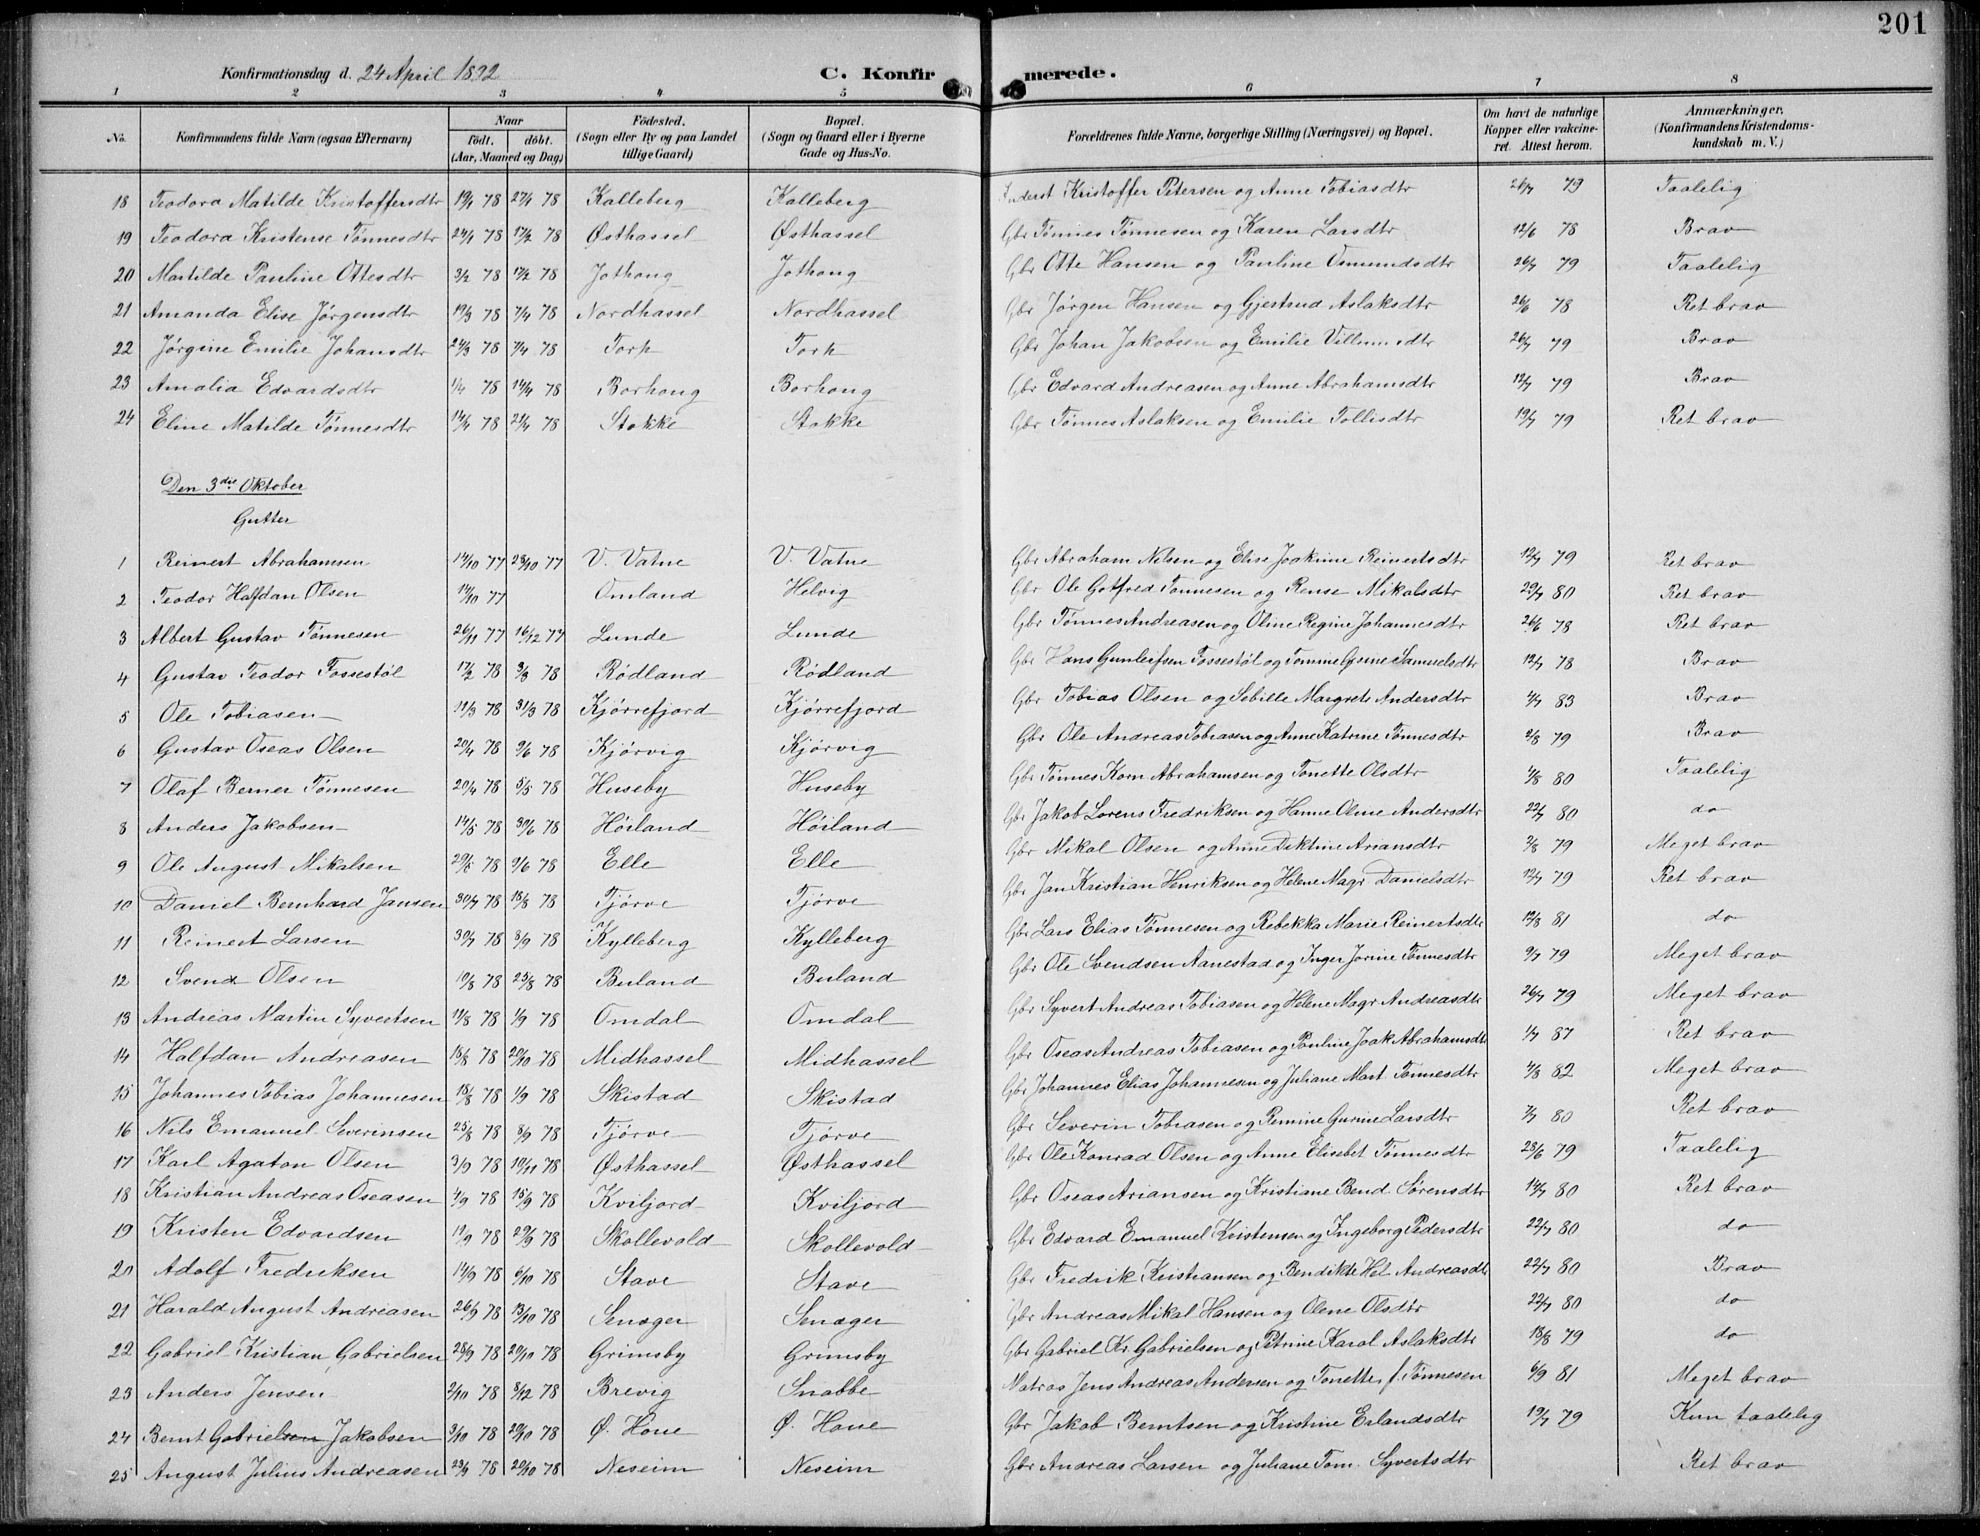 201
Konfirmationsdag d. 24 April 1892 C. Konfirmerede.
1 2 3 4 5 6 7 8
No. Konfirmandens fulde Navn (ogsaa Efternavn) Naar födt. döbt. (Aar, Maaned og Dag) Födested. (Sogn eller By og paa Landet tillige Gaard) Bopæl. (Sogn og Gaard eller i Byerne Gade og Hus-No. Forældrenes fulde Navne, borgerlige Stilling (Næringsvei) og Bopæl. Om havt de naturlige Kopper eller vakcineret. Attest herom. Anmærkninger. (Konfirmandens Kristendomskundskab m. V.)
18 Teodora Matilde Kristoffersdtr 19/4 78 27/4 78 Kalleberg Kalleberg Kristoffer Petersen og Anne Tobiasdtr 26/7 79 Taalelig
19 Teodora Kristense Tønnesdtr 24/1 78 17/2 78 Østhassel Østhassel Gbr Tønnes Tønnesen og Karen Larsdtr 12/6 78 Brav
20 Martilde Pauline Ottesdtr 3/2 78 17/2 78 Jothong Jothong Gbr Otte Hansen og Pauline Osmundsdtr 26/7 79 Taalelig
21 Amanda Elise Jørgensdtr 19/3 78 7/4 78 Nordhassel Nordhassel Gbr Jørgen Hansen og Gjertrud Aslaksdtr 26/6 78 Ret brav
22 Jørgine Emilie Johansdtr 24/3 78 7/4 78 Tork Tork Gbr Johan Jakobsen og Emilie Villumsdtr 26/7 79 Brav
23 Amalia Edvardsdtr 1/4 78 14/4 78 Borhong Borhong Gbr Edvard Andreasen og Anne Abrahamsdtr 12/7 79 Brav
24 Eline Matilde Tønnesdtr 14/4 78 21/4 78 Stokke Stokke Gbr Tønnes Aslaksen og Emilie Tollisdtr 19/7 79 Ret brav
Den 3die Oktober
Gutter
1 Reinert Abrahamsen 14/10 77 28/10 77 V. Vatne V. Vatne Gbr Abraham Nilsen og Elise Joakime Reinertsdtr 12/7 79 Ret brav
2 Teodor Halfdan Olsen 14/10 77 Omland Helvig Gbr Ole Gotfred Tønnesen og Rense Mikalsdtr 29/7 80 Ret brav
3 Albert Gustav Tønnesen 26/11 77 16/12 77 Lunde Lunde Gbr Tønnes Andreasen og Oline Regine Johannesdtr 26/6 78 Ret brav
4 Gustav Teodor Fossestøl 17/2 78 3/3 78 Rødland Rødland Gbr Hans Gunleifsen Fossestøl og Tomine Gusine Samuelsdtr 12/7 78 Brav
5 Ole Tobiasen 11/3 78 31/3 78 Kjørrefjord Kjørrefjord Gbr Tobias Olsen og Sebille Margrete Andersdtr 83 Brav
6 Gustav Oseas Olsen 20/4 78 9/6 78 Kjørvig Kjørvig Gbr Ole Andreas Tobiasen og Anne Katrine Tønnesdtr 2/8 79 Brav
7 Olaf Berner Tønnesen 20/4 78 5/5 78 Huseby Huseby Gbr Tønnes Korn Abrahamsen og Tonette Olsdtr 80 Taalelig
8 Anders Jakobsen 14/5 78 30/6 78 Høiland Høiland Gbr Jakob Lorens Fredriksen og Hanne Oline Andersdtr 22/7 80 do
9 Ole August Mikalsen 29/5 78 9/6 78 Elle Elle Gbr Mikal Olsen og Anne Diktine Ariansdtr 79 Meget brav
10 Daniel Bernhard Jansen 30/7 78 18/8 78 Tjørve Tjørve Gbr Jan Kristian Henriksen og Helene Magr Danielsdtr 12/7 79 Ret brav
11 Reinert Larsen 30/7 78 8/9 78 Kylleberg Kylleberg Gbr Lars Elias Tønnesen og Rebekka Marie Reinertsdtr 12/8 81 do
12 Svend Olsen 10/8 78 25/8 78 Buland Buland Gbr Ole Svendsen Aanestad og Inger Jorine Tønnesdtr 9/7 79 Meget brav
13 Andreas Martin Syvertsen 11/8 78 1/9 78 Omdal Omdal Gbr Syvert Andreas Tobiasen og Helene Magr Andreasdtr 26/7 79 Meget brav
14 Halfdan Andreasen 18/8 78 20/10 78 Midhassel Midhassel Gbr Oseas Andreas Tobiasen og Pauline Joak Abrahamsdtr 1/7 87 Ret brav
15 Johannes Tobias Johannesen 18/8 78 1/9 78 Skistad Skistad Gbr Johannes Elias Johannesen og Juliane Mart Tønnesdtr 82 Meget brav
16 Nils Emanuel Severinsen 25/8 78 8/9 78 Tjørve Tjørve Gbr Severin Tobiasen og Pernine Gurine Larsdtr 80 Ret brav
17 Karl Agaton Olsen 3/9 78 10/11 78 Østhassel Østhassel Gbr Ole Konrad Olsen og Anne Elisebet Tønnesdtr 28/6 79 Taalelig
18 Kristian Andreas Oseasen 4/9 78 15/9 78 Kviljord Kviljord Gbr Oseas Ariansen og Kristiane Bend Sørensdtr 14/7 80 Ret brav
19 Kristen Edvardsen 11/9 78 29/9 78 Skollevold Skollevold Gbr Edvard Emanuel Kristensen og Ingeborg Pedersdtr 22/7 80 do
20 Adolf Fredriksen 14/9 78 6/10 78 Stave Stave Gbr Fredrik Kristiansen og Bendikte Hel Andreasdtr 22/7 80 Brav
21 Harald August Andreasen 26/9 78 13/10 78 Senæger Senæger Gbr Andreas Mikal Hansen og Olene Olsdtr 22/7 80 do
22 Gabriel Kristian Gabrielsen 28/9 78 20/10 78 Grimsby Grimsby Gbr Gabriel Kr. Gabrielsen og Petrine Karol Aslaksdtr 18/8 79 do
23 Anders Jensen 2/10 78 8/12 78 Brevig Snabbe Matros Jens Andreas Andersen og Tonette f. Tønnesen 6/9 81 Meget brav
24 Bernt Gabrielsen Jakobsen 3/10 78 20/10 78 Ø. Hone Ø. Hone Gbr Jakob Berntsen og Kristine Erlandsdtr 19/7 79 Kun taalelig
25 August Julius Andreasen 23/9 78 20/10 78 Neseim Neseim Gbr Andreas Larsen og Juliane Tom. Syvertsdtr Ret brav